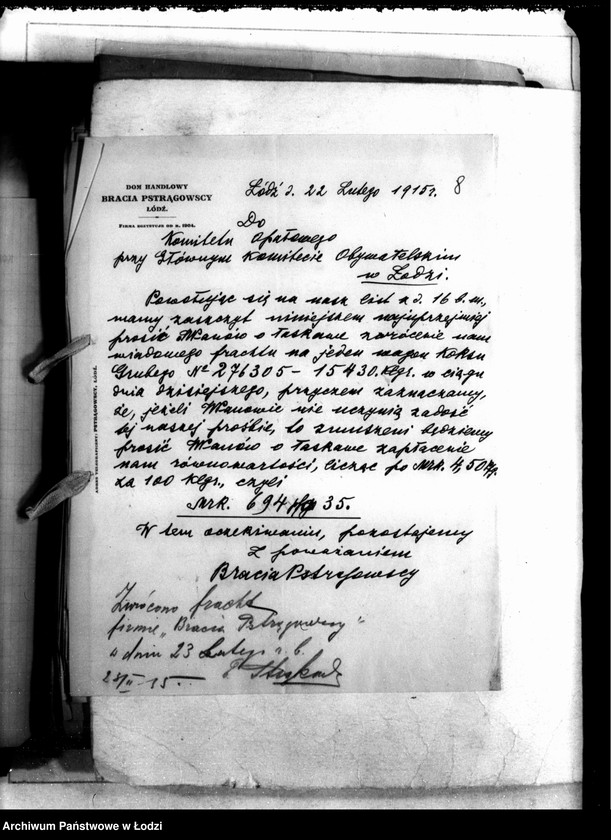 8
DOM HANDLOWY
BRACIA PSTRĄGOWSCY
ŁÓDŹ.
FIRMA EGZYSTUJE OD R. 1904.
ADRES TELEGRAFICZNY: PSTRĄGOWSCY, ŁÓDŹ.
Łódź d. 22 Lutego 1915 r.
Do
Komitetu Opałowego
przy Głównym Komitecie Obywatelskim
w Łodzi.
Powołując się na nasz list z d. 16 b. m.,
mamy zaszczyt niniejszem najuprzejmiej
prosić WPanów o łaskawe zwrócenie nam
wiadomego frachtu na jeden wagon koksu
Grubego № 276305 – 15430 klgr. w ciągu
dnia dzisiejszego, przyczem zaznaczamy,
że, jeżeli WPanowie nie uczynią zadość
tej naszej prośbie, to zmuszeni będziemy
prosić WPanów o łaskawe zapłacenie
nam równowartości, licząc po Mrk. 4,50
za 100 klgr., czyli
Mrk. 694 35.
W tem oczekiwaniu, pozostajemy
Z poważaniem
Bracia Pstrągowscy
Zwrócono fracht
firmie „Bracia Pstrągowscy"
dnia 23 Lutego r. b.
23/II – 15.
Archiwum Państwowe w Łodzi